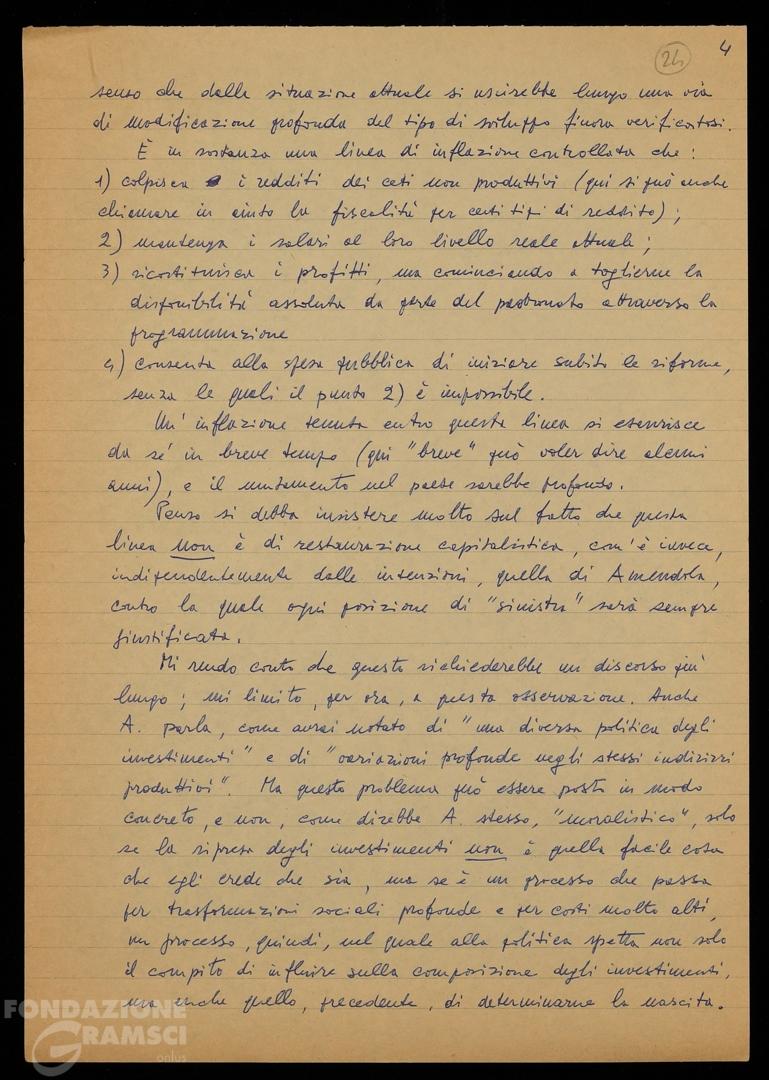 4
24
senso che dalla situazione attuale si uscirebbe lungo una via
di modificazione profonda del tipo di sviluppo finora verificatosi.
È in sostanza una linea di inflazione controllata che :
1) colpisca i redditi dei ceti non produttivi (qui si può anche
chiamare in aiuto la fiscalità per certi tipi di reddito) ;
2) mantenga i salari al loro livello reale attuale ;
3) ricostituisca i profitti, ma cominciando a toglierne la
disponibilità assoluta da parte del padronato attraverso la
programmazione
4) consenta alla spesa pubblica di iniziare subito le riforme,
senza le quali il punto 2) è impossibile.
Un' inflazione tenuta entro questa linea si esaurisce
da sé in breve tempo (qui "breve" può voler dire alcuni
anni), e il mutamento nel paese sarebbe profondo.
Penso si debba insistere molto sul fatto che questa
linea non è di restaurazione capitalistica, com'è invece,
indipendentemente dalle intenzioni, quella di Amendola,
contro la quale ogni posizione di "sinistra" sarà sempre
giustificata.
Mi rendo conto che questo richiederebbe un discorso più
lungo ; mi limito, per ora, a questa osservazione. Anche
A. parla, come avrai notato di "una diversa politica degli
investimenti" e di "variazioni profonde negli stessi indirizzi
produttivi". Ma questo problema può essere posto in modo
concreto, e non, come direbbe A. stesso, "moralistico", solo
se la ripresa degli investimenti non è quella facile cosa
che egli crede che sia, ma se è un processo che passa
per trasformazioni sociali profonde e per costi molto alti,
un processo, quindi, nel quale alla politica spetta non solo
il compito di influire sulla composizione degli investimenti,
ma anche quello, precedente, di determinarne la nascita.
FONDAZIONE
GRAMSCI
onlus